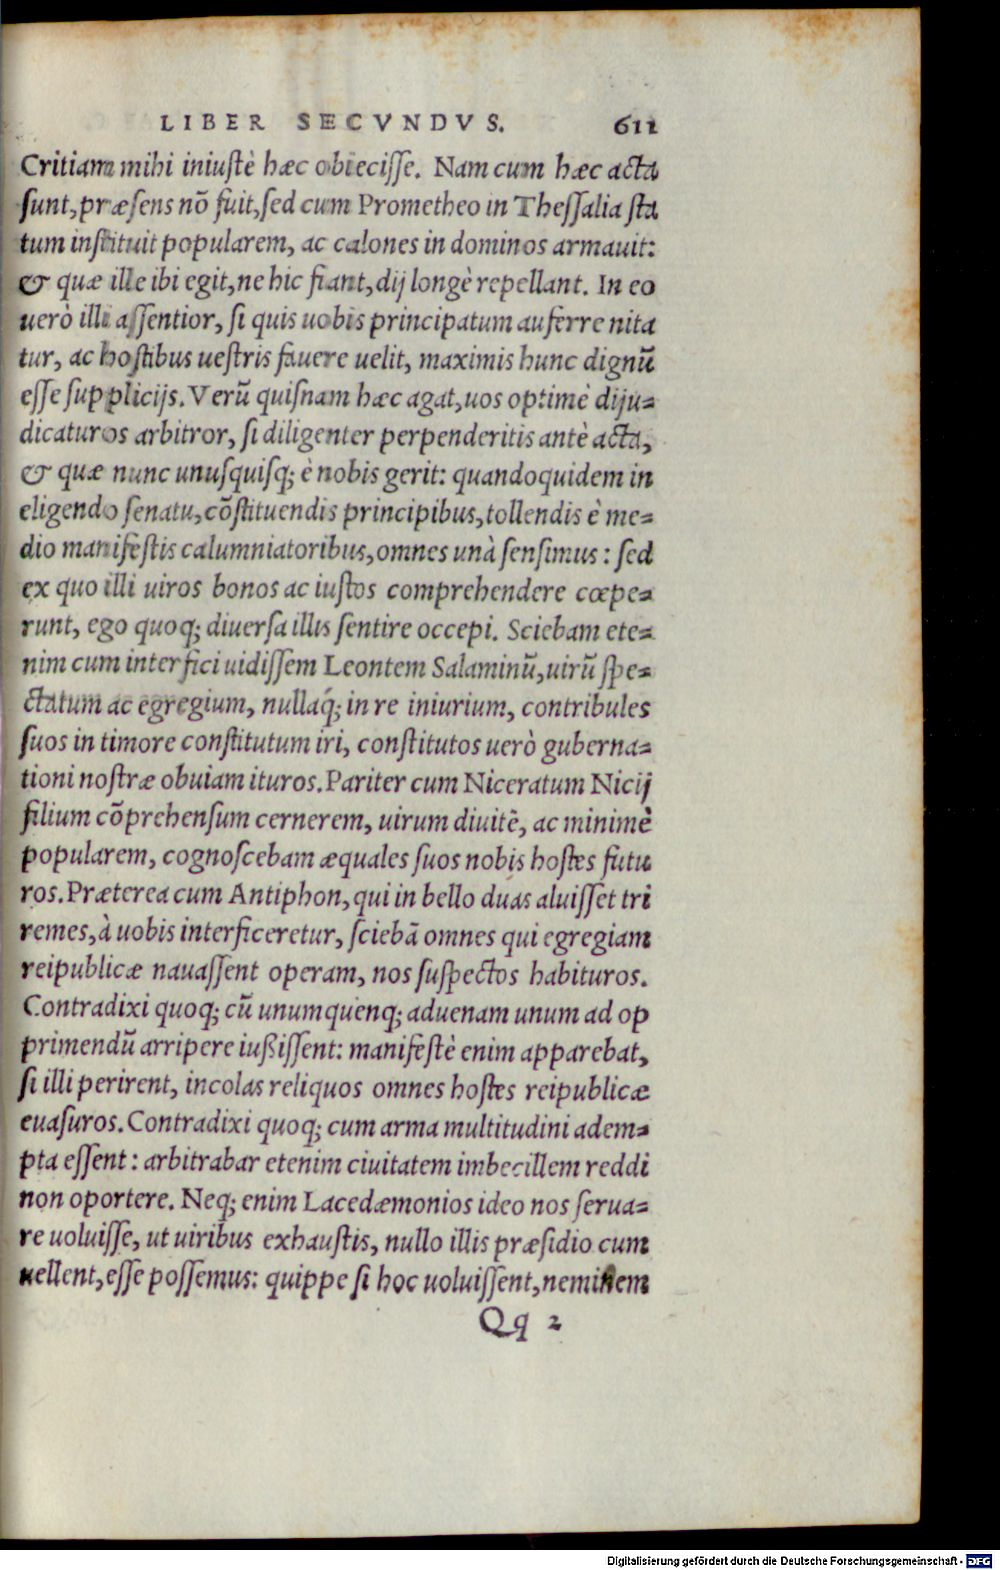 LIBER SECVNDVS. 611
Critiam mihi iniustè hæc obiecisse. Nam cum hæc acta
sunt, præsens nõ fuit, sed cum Prometheo in Thessalia sta
tum instituit popularem, ac calones in dominos armauit:
& quæ ille ibi egit, ne hic fiant, dij longè repellant. In eo
uerò illi assentior, si quis uobis principatum auferre nita
tur, ac hostibus uestris fauere uelit, maximis hunc dignũ
esse supplicijs. Verũ quisnam hæc agat, uos optimè diju-
dicaturos arbitror, si diligenter perpenderitis antè acta,
& quæ nunc unusquisq; è nobis gerit: quandoquidem in
eligendo senatu, cõstituendis principibus, tollendis è me-
dio manifestis calumniatoribus, omnes unà sensimus: sed
ex quo illi uiros bonos ac iustos comprehendere cœpe-
runt, ego quoq; diuersa illis sentire occepi. Sciebam ete-
nim cum interfici uidissem Leontem Salaminũ, uirũ spe-
ctatum ac egregium, nullaq́; in re iniurium, contribules
suos in timore constitutum iri, constitutos uerò guberna-
tioni nostræ obuiam ituros. Pariter cum Niceratum Nicij
filium cõprehensum cernerem, uirum diuitẽ, ac minimè
popularem, cognoscebam æquales suos nobis hostes futu
ros. Præterea cum Antiphon, qui in bello duas aluisset tri
remes, à uobis interficeretur, sciebã omnes qui egregiam
reipublicæ nauassent operam, nos suspectos habituros.
Contradixi quoq; cũ unumquenq; aduenam unum ad op
primendũ arripere iußissent: manifestè enim apparebat,
si illi perirent, incolas reliquos omnes hostes reipublicæ
euasuros. Contradixi quoq; cum arma multitudini adem-
pta essent: arbitrabar etenim ciuitatem imbecillem reddi
non oportere. Neq; enim Lacedæmonios ideo nos serua-
re uoluisse, ut uiribus exhaustis, nullo illis præsidio cum
uellent, esse possemus: quippe si hoc uoluissent, neminem
Qq 2
Digitalisierung gefördert durch die Deutsche Forschungsgemeinschaft - DFG